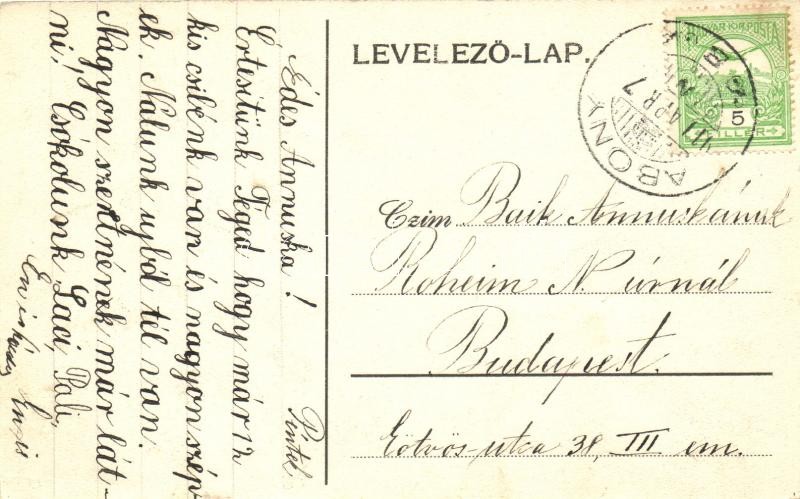 LEVELEZŐ-LAP.
MAGYAR KIR. POSTA
5
FILLÉR
ABONY
APR 7
Czim Baik Annuskának
Roheim N. úrnál
Budapest.
Eötvös-utca 38, III em.
Péntek
Édes Annuska!
Értesítünk Téged hogy már 12
kis csibénk van és nagyon szép-
ek. Nálunk ujból tél van.
Nagyon szeretnének már lát-
ni! Csókolunk Laci, Pali,
Én is